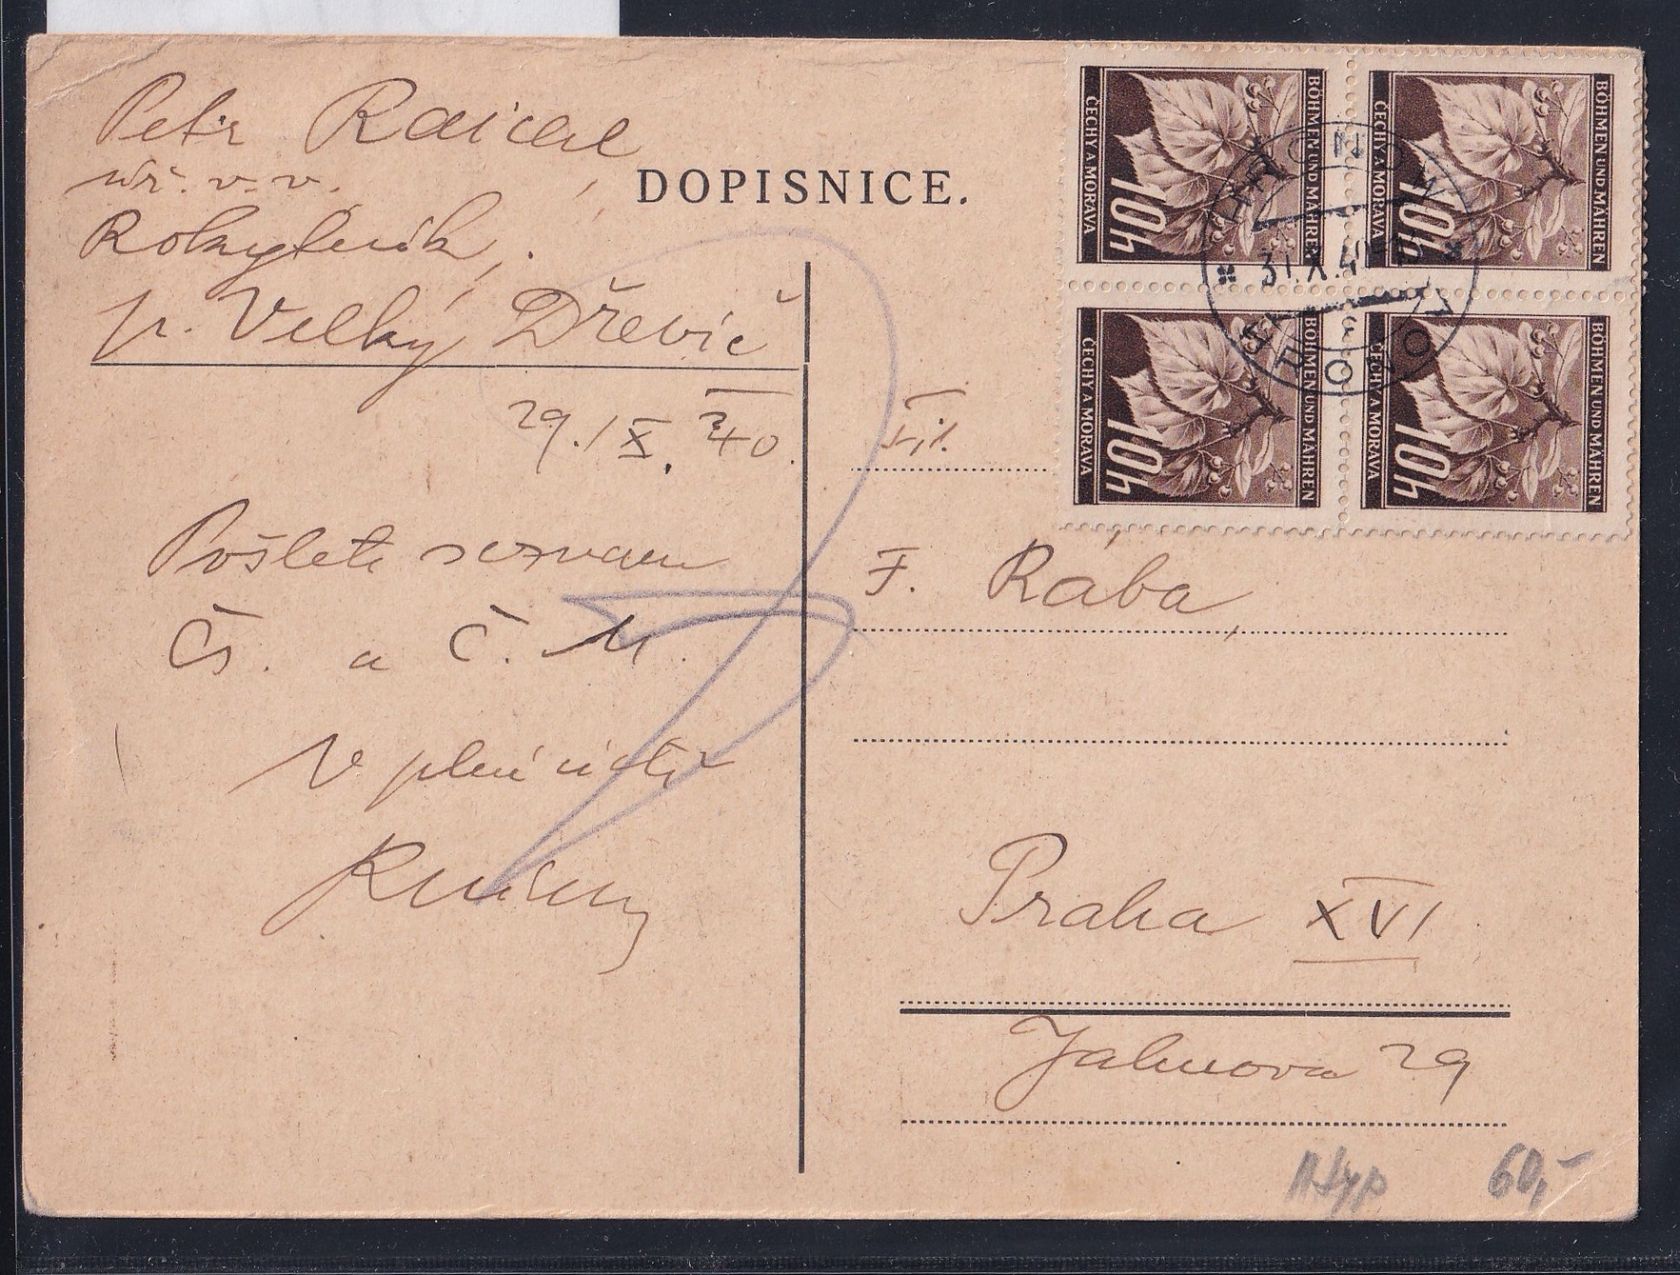 Petr
v.v.
Rokytník,
p. Velký Dřevíč
29./X. 40.
Pošlete seznam
Čs. a Č. M.
V plné úctě
DOPISNICE.
F. Rába,
Praha XVI
Jahnova 29
BÖHMEN UND MÄHREN
ČECHY A MORAVA
10h
BÖHMEN UND MÄHREN
ČECHY A MORAVA
10h
BÖHMEN UND MÄHREN
ČECHY A MORAVA
10h
BÖHMEN UND MÄHREN
ČECHY A MORAVA
10h
HRONOW
31.X.40
HRONOV
60,-